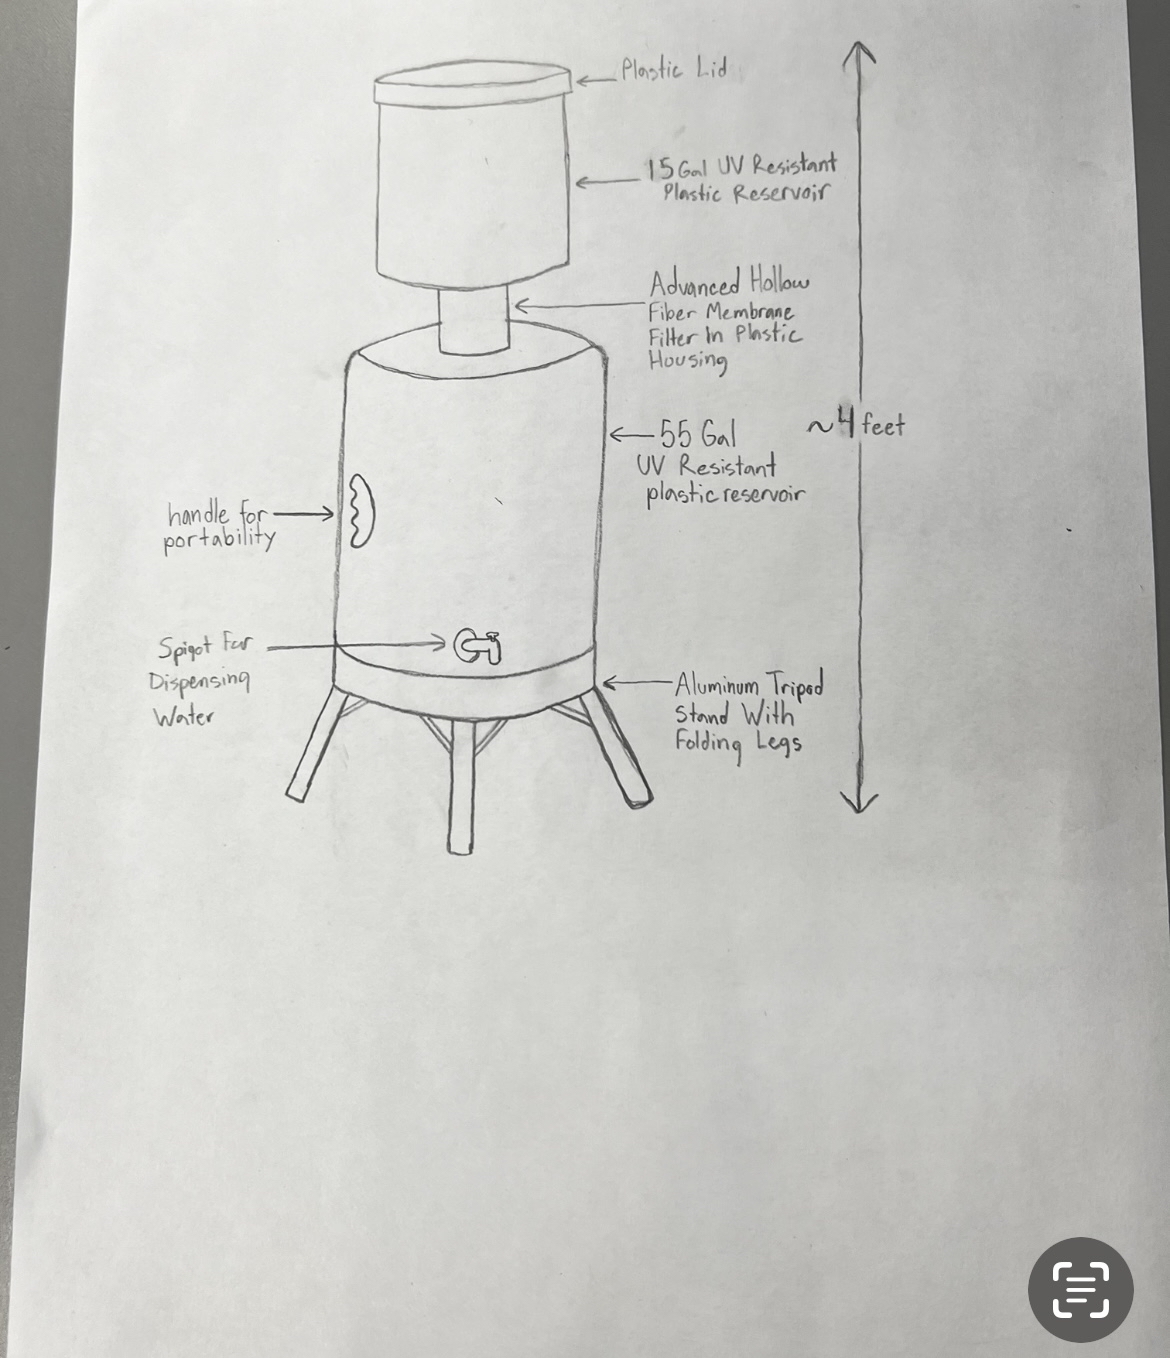 Plastic Lid
15 Gal UV Resistant
Plastic Reservoir
Advanced Hollow
Fiber Membrane
Filter In Plastic
Housing
~4 feet
55 Gal
UV Resistant
plastic reservoir
handle for
portability
Spigot For
Dispensing
Water
Aluminum Tripod
Stand With
Folding Legs